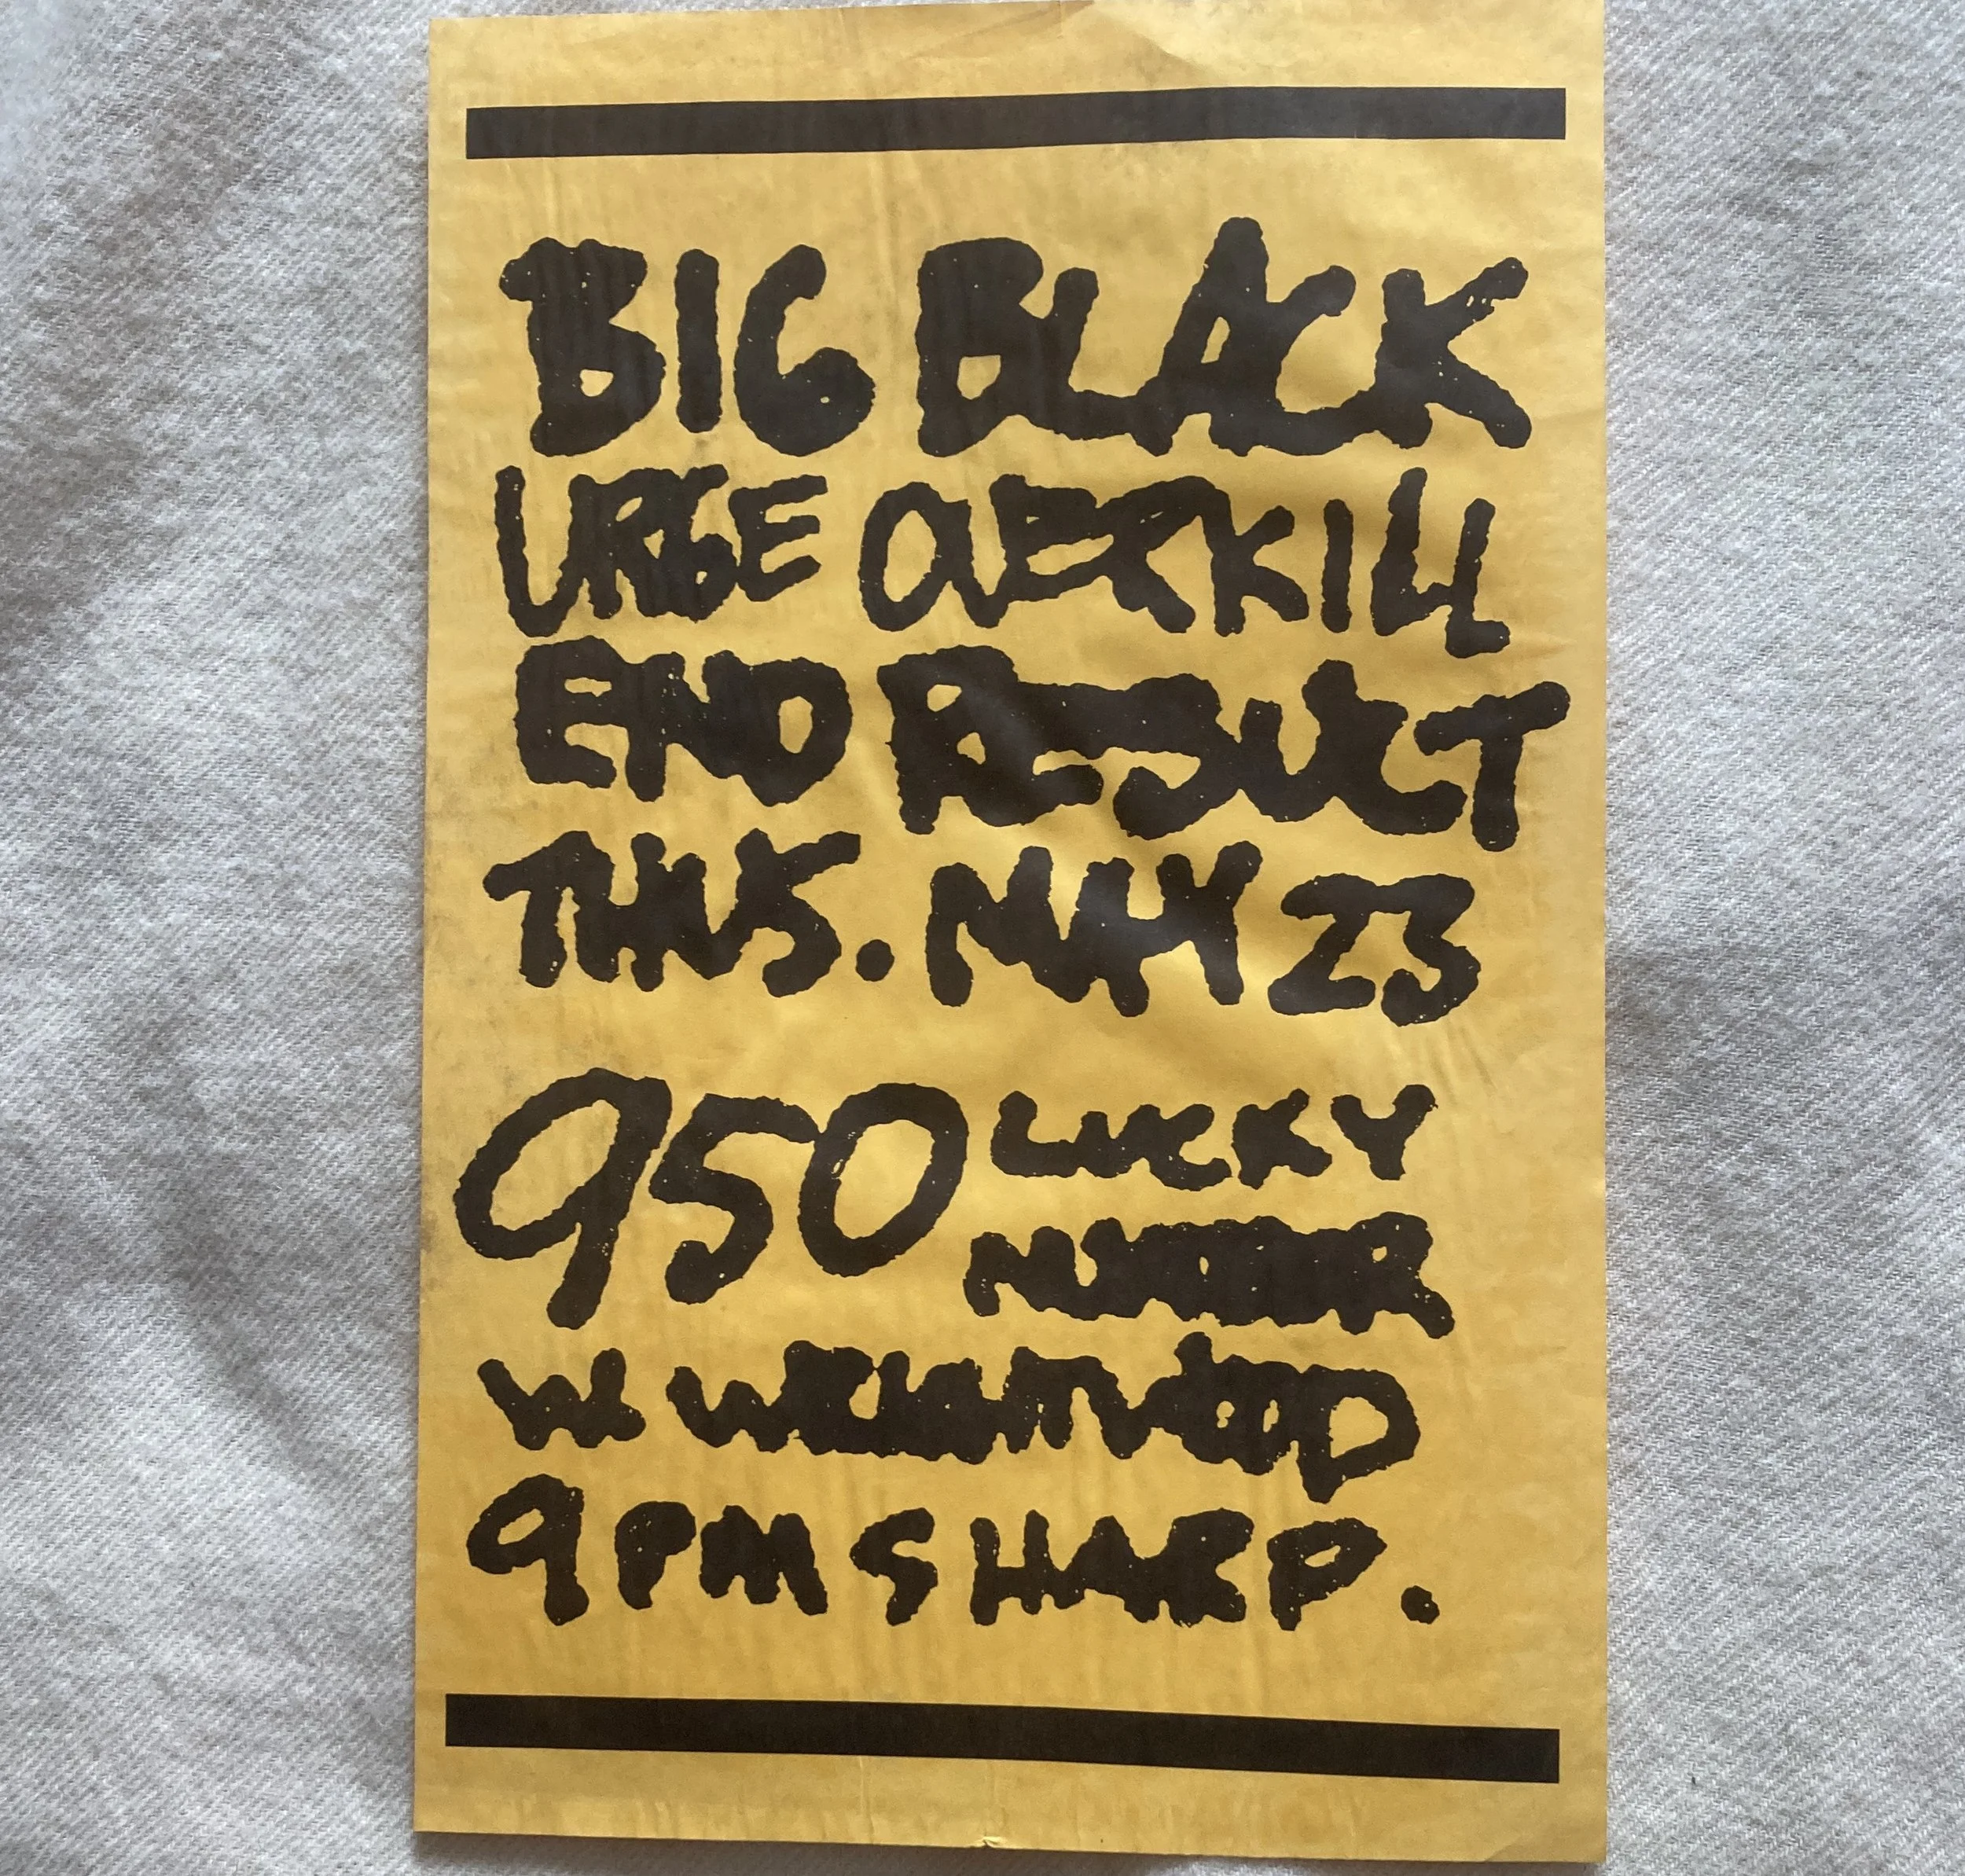 BIG BLACK
URGE OVERKILL
END RESULT
THURS. MAY 23
950 LUCKY
NUMBER
W. WRIGHTWOOD
9 PM SHARP.